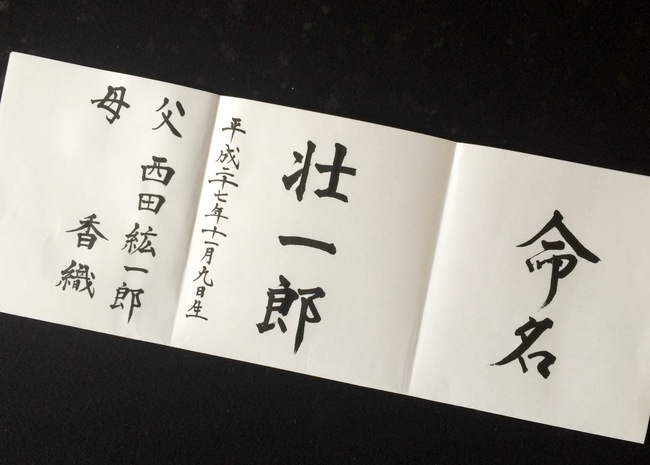 命名
壮一郎
平成二十七年十一月九日生
父 西田紘一郎
母 香織